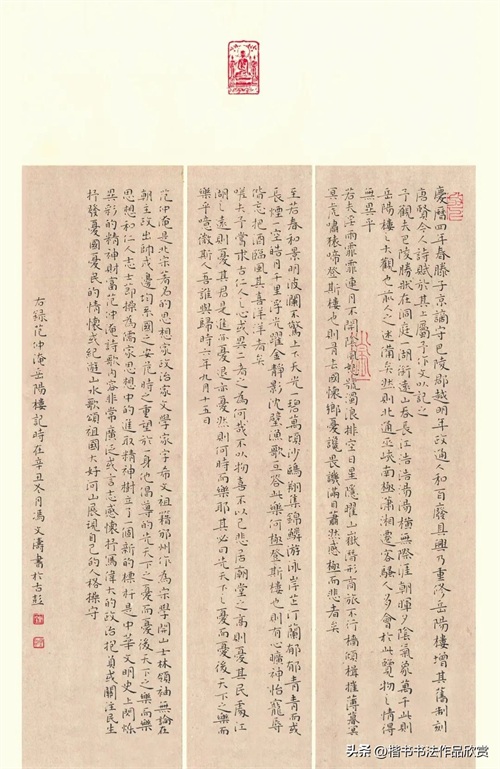 慶曆四年春滕子京謫守巴陵郡越明年政通人和百廢具興乃重修岳陽樓增其舊制刻
唐賢今人詩賦於其上屬予作文以記之
予觀夫巴陵勝狀在洞庭一湖銜遠山吞長江浩浩湯湯橫無際涯朝暉夕陰氣象萬千此則
岳陽樓之大觀也前人之述備矣然則北通巫峽南極瀟湘遷客騷人多會於此覽物之情得
無異乎
若夫淫雨霏霏連月不開陰風怒號濁浪排空日星隱曜山嶽潛形商旅不行檣傾楫摧薄暮冥
冥虎嘯猿啼登斯樓也則有去國懷鄉憂讒畏譏滿目蕭然感極而悲者矣
至若春和景明波瀾不驚上下天光一碧萬頃沙鷗翔集錦鱗游泳岸芷汀蘭郁郁青青而或
長煙一空皓月千里浮光躍金靜影沈璧漁歌互答此樂何極登斯樓也則有心曠神怡寵辱
偕忘把酒臨風其喜洋洋者矣
嗟夫予嘗求古仁人之心或異二者之為何哉不以物喜不以己悲居廟堂之高則憂其民處江
湖之遠則憂其君是進亦憂退亦憂然則何時而樂耶其必曰先天下之憂而憂後天下之樂而
樂乎噫微斯人吾誰與歸時六年九月十五日
范仲淹是北宋著名的思想家政治家文學家字希文祖籍邠州作為宗學開山士林領袖無論在
朝主政出帥戍邊均系國之安危時之重望於一身他倡導的先天下之憂而憂後天下之樂而樂
思想和仁人志士節操為儒家思想中的進取精神樹立了一個新的標杆是中華文明史上閃爍
異彩的精神財富范仲淹詩歌內容非常廣泛或言志感懷抒寫偉大的政治抱負或關注民生
抒發憂國憂民的情懷或紀遊山水歌頌祖國大好河山展現自己的人格操守
右錄范仲淹岳陽樓記時在辛丑冬月馮文濤書於古彭
头条 @楷书书法作品欣赏